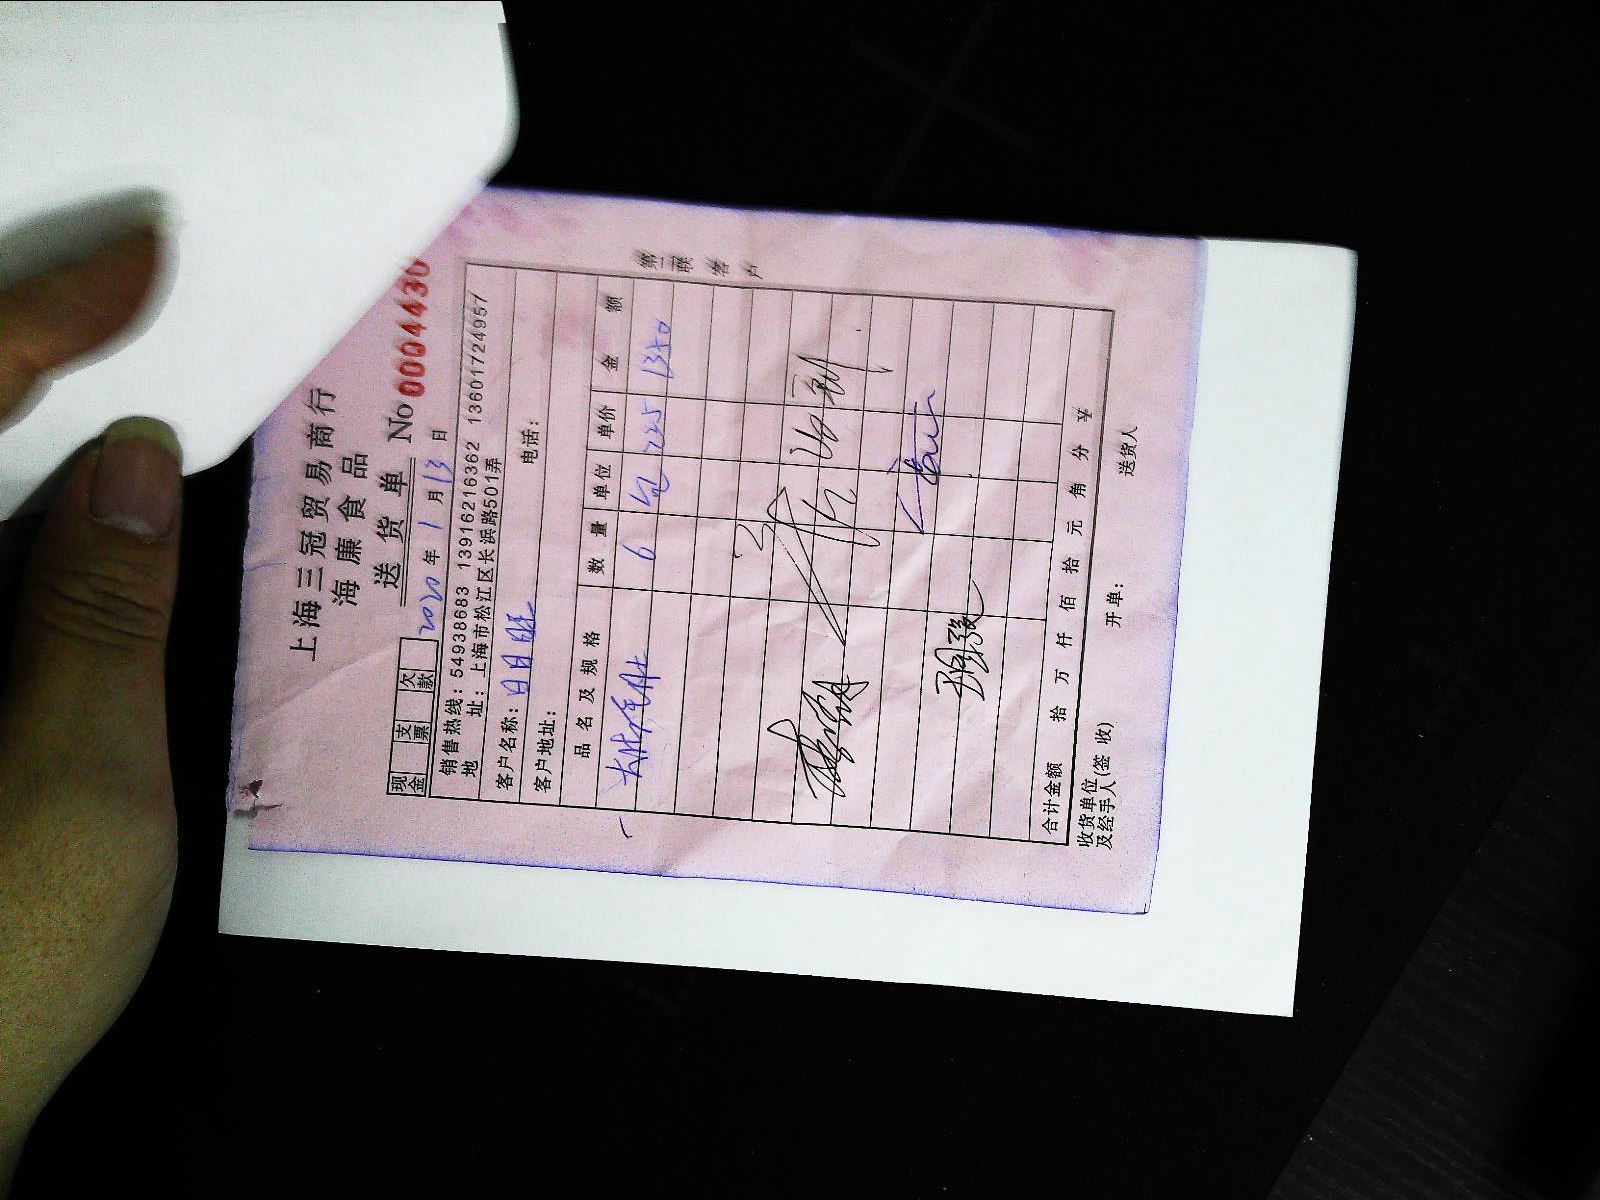 上海三冠贸易商行
海廉食品
送货单 No 0004430
现金 支票 欠款 2020年1月13日
销售热线：54938683 13916216362 13601724957
地址：上海市松江区长浜路501弄
客户名称：日日旺
客户地址： 电话：
品名及规格 数量 单位 单价 金额
6 包 225 1350
第二联 客户
合计金额 拾 万 仟 佰 拾 元 角 分 ¥
收货单位及经手人(签收) 开单： 送货人